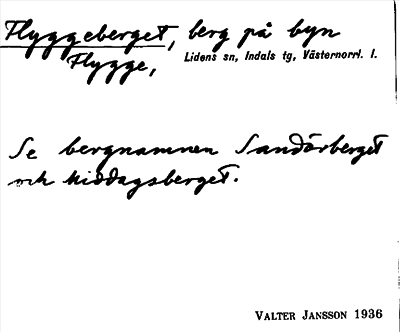 Flyggeberget, berg på byn
Flygge, Lidens sn, Indals tg, Västernorrl. l.
Se bergnamnen Sandörberget
och Middagsberget.
VALTER JANSSON 1936